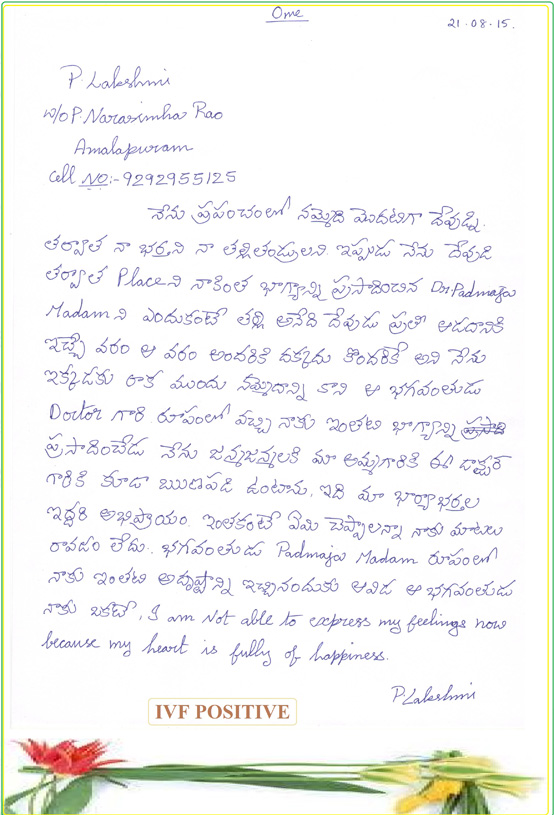 Ome
21.08.15.
P. Lakshmi
w/o P. Narasimha Rao
Amalapuram
Cell NO:-9292955125
నేను ప్రపంచంలో నమ్మేది మొదటిగా దేవుడ్ని.
తర్వాత నా భర్తని నా తల్లితండ్రులని ఇప్పుడు నేను దేవుడి
తర్వాత Placeని నాకింత భాగ్యాన్ని ప్రసాదించిన Dr. Padmaja
Madamని ఎందుకంటే తల్లి అనేది దేవుడు ప్రతి ఆడదానికి
ఇచ్చే వరం ఆ వరం అందరికి దక్కదు కొందరికే అని నేను
ఇక్కడకు రాక ముందు నమ్మేదాన్ని కాని ఆ భగవంతుడు
Doctor గారి రూపంలో వచ్చి నాకు ఇంతటి భాగ్యాన్ని ప్రసాది
ప్రసాదించేడు నేను జన్మజన్మలకి మా అమ్మగారికి ఈ డాక్టర్
గారికి కూడా ఋణపడి ఉంటాను, ఇది మా భార్యాభర్తల
ఇద్దరి అభిప్రాయం. ఇంతకంటే ఏమి చెప్పాలన్నా నాకు మాటలు
రావడం లేదు. భగవంతుడు Padmaja Madam రూపంలో
నాకు ఇంతటి అదృష్టాన్ని ఇచ్చినందుకు ఆవిడ ఆ భగవంతుడు
నాకు ఒకటే, I am Not able to express my feelings now
because my heart is fully of happiness.
P. Lakshmi
IVF POSITIVE